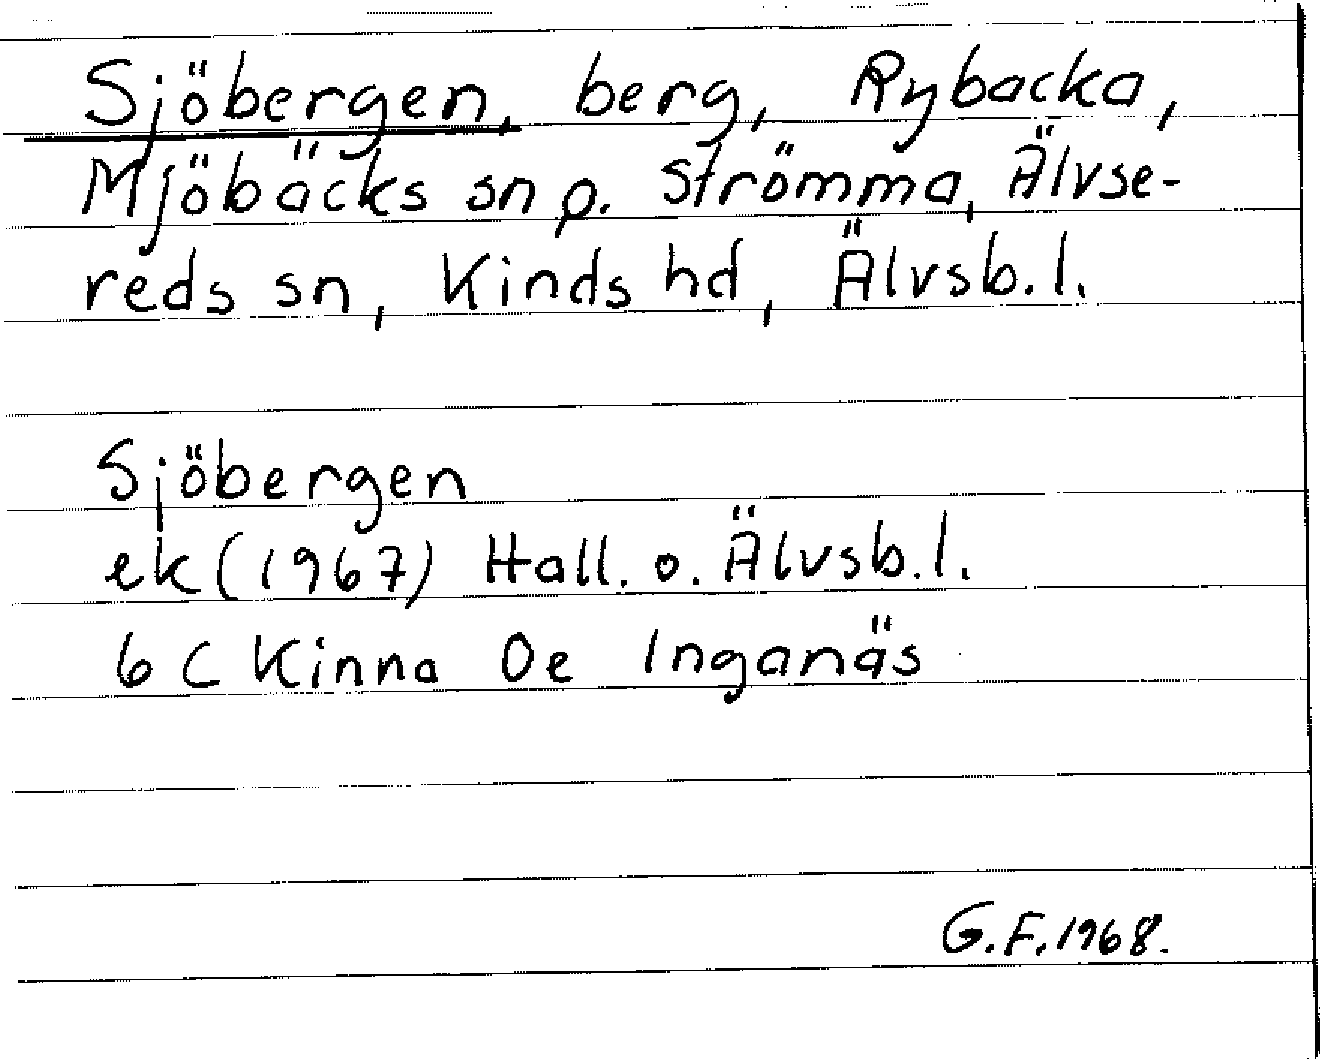 Sjöbergen, berg, Rybacka,
Mjöbäcks sn p. Strömma, Älvse-
reds sn, Kinds hd, Älvsb. l.
Sjöbergen
ek (1967) Hall. o. Älvsb. l.
6 C Kinna 0e Inganäs
G. F. 1968.